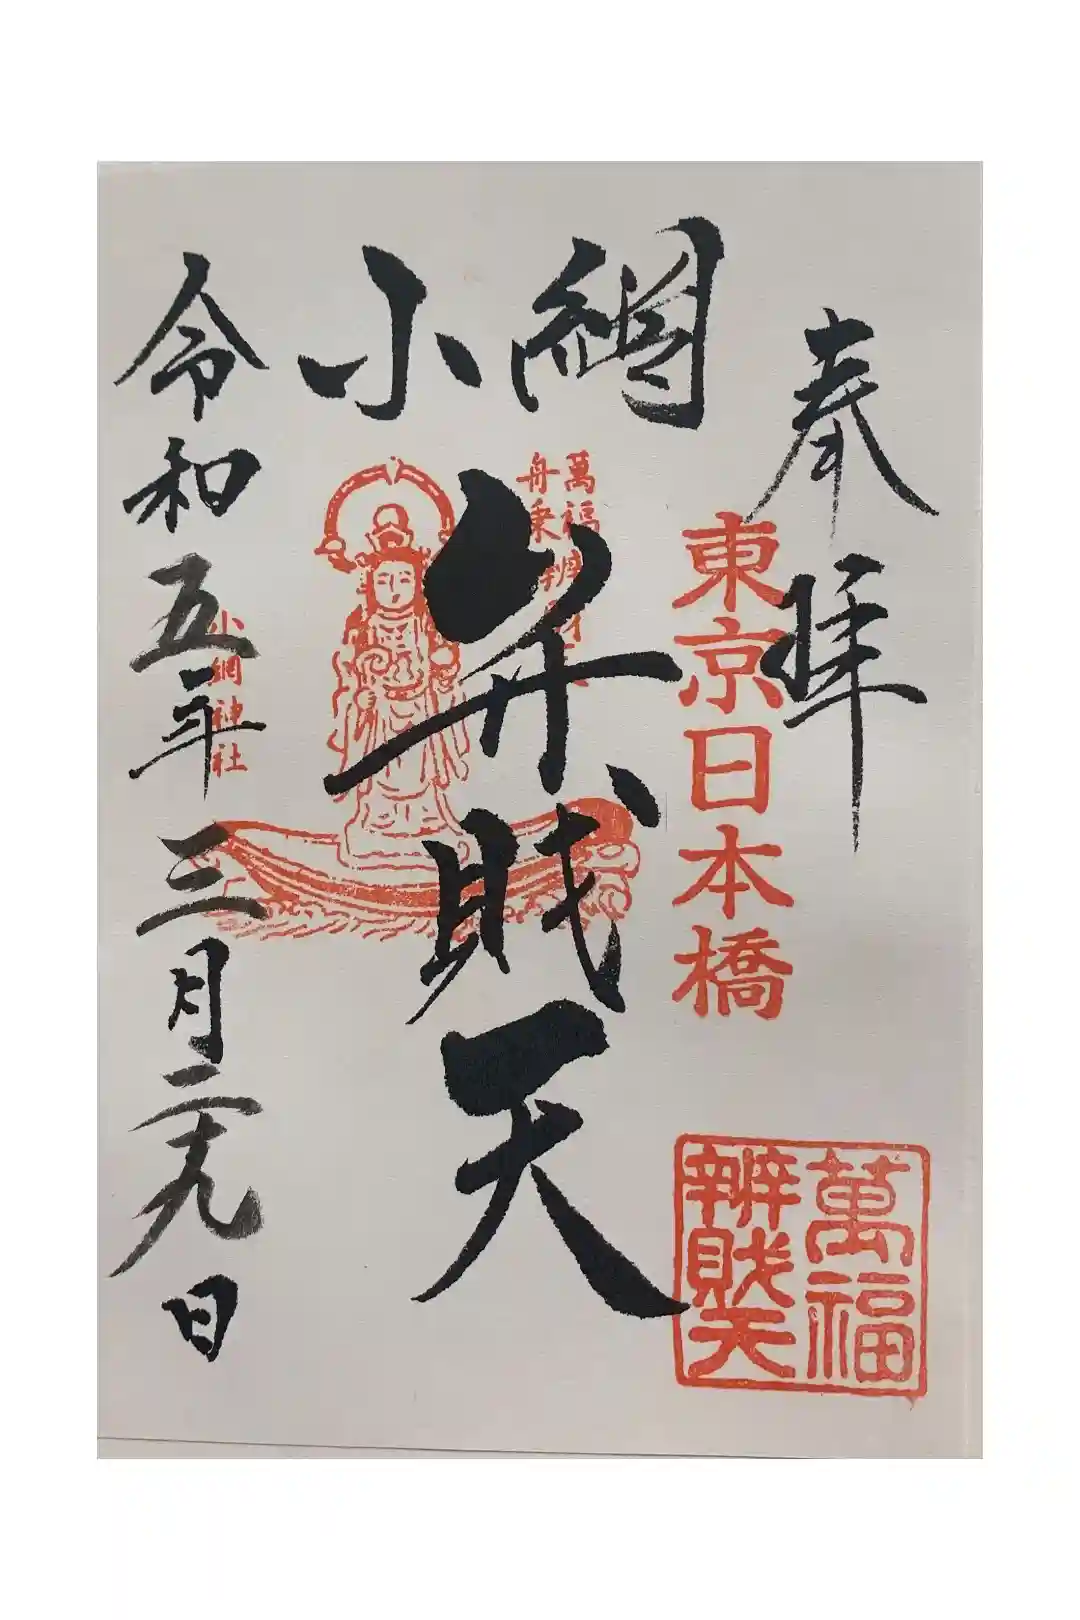 奉拝
東京日本橋
萬福
辨財天
小網
弁財天
萬福辨財天
舟乗
小網神社
令和五年三月二十九日